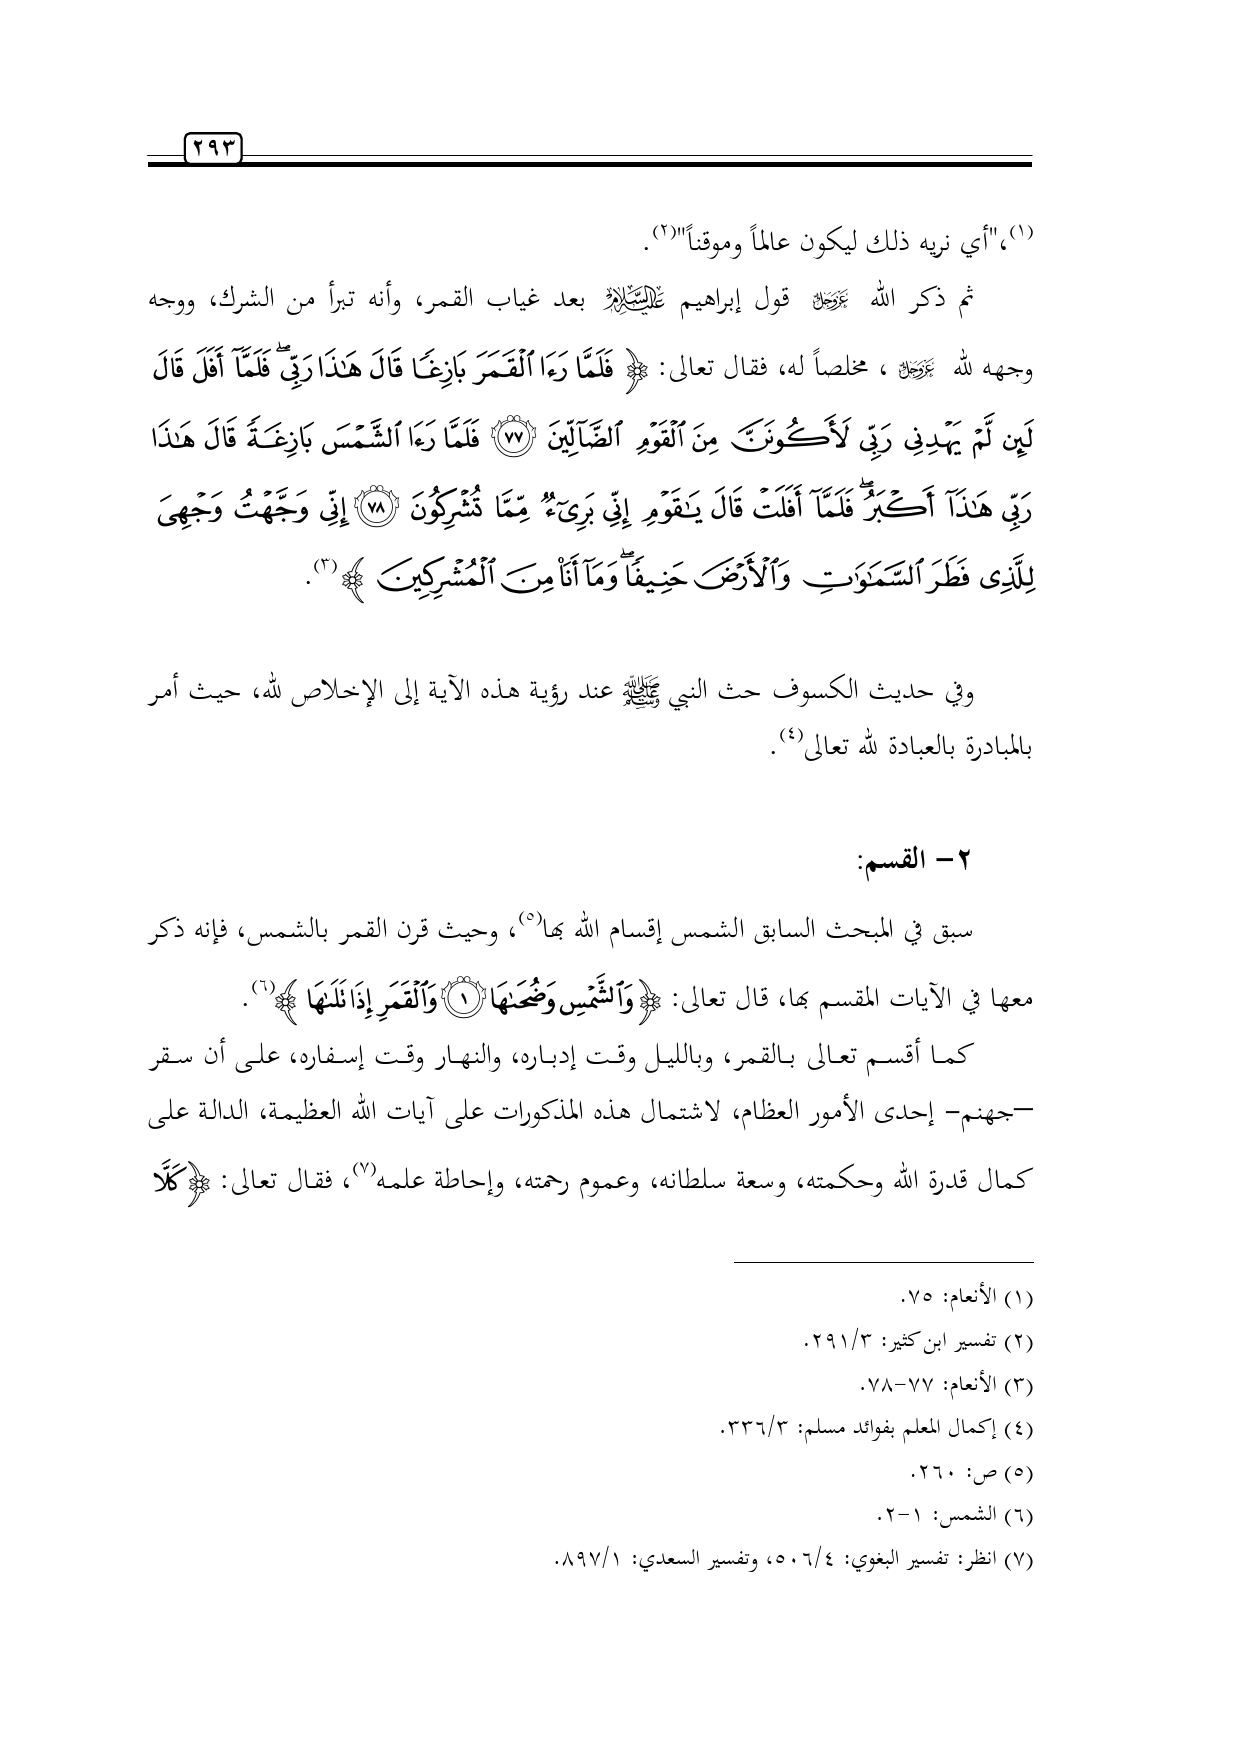 ٢٩٣
(١)،"أي نريه ذلك ليكون عالماً وموقناً"(٢).
ثم ذكر الله عَزَّوَجَلَّ قول إبراهيم عَلَيْهِ السَّلَامُ بعد غياب القمر، وأنه تبرأ من الشرك، ووجه
وجهه لله عَزَّوَجَلَّ ، مخلصاً له، فقال تعالى: ﴿ فَلَمَّا رَءَا ٱلْقَمَرَ بَازِغًا قَالَ هَٰذَا رَبِّي ۖ فَلَمَّآ أَفَلَ قَالَ
لَئِن لَّمْ يَهْدِنِى رَبِّي لَأَكُونَنَّ مِنَ ٱلْقَوْمِ ٱلضَّآلِّينَ ٧٧ فَلَمَّا رَءَا ٱلشَّمْسَ بَازِغَةً قَالَ هَٰذَا
رَبِّي هَٰذَآ أَكْبَرُ ۖ فَلَمَّآ أَفَلَتْ قَالَ يَٰقَوْمِ إِنِّي بَرِىٓءٌ مِّمَّا تُشْرِكُونَ ٧٨ إِنِّي وَجَّهْتُ وَجْهِىَ
لِلَّذِى فَطَرَ ٱلسَّمَٰوَٰتِ وَٱلْأَرْضَ حَنِيفًا ۖ وَمَآ أَنَا۠ مِنَ ٱلْمُشْرِكِينَ ﴾(٣).
وفي حديث الكسوف حث النبي ﷺ عند رؤية هذه الآية إلى الإخلاص لله، حيث أمر
بالمبادرة بالعبادة لله تعالى(٤).
٢– القسم:
سبق في المبحث السابق الشمس إقسام الله بها(٥)، وحيث قرن القمر بالشمس، فإنه ذكر
معها في الآيات المقسم بها، قال تعالى: ﴿ وَٱلشَّمْسِ وَضُحَىٰهَا ١ وَٱلْقَمَرِ إِذَا تَلَىٰهَا ﴾(٦).
كما أقسم تعالى بالقمر، وبالليل وقت إدباره، والنهار وقت إسفاره، على أن سقر
–جهنم– إحدى الأمور العظام، لاشتمال هذه المذكورات على آيات الله العظيمة، الدالة على
كمال قدرة الله وحكمته، وسعة سلطانه، وعموم رحمته، وإحاطة علمه(٧)، فقال تعالى: ﴿ كَلَّا
(١) الأنعام: ٧٥.
(٢) تفسير ابن كثير: ٢٩١/٣.
(٣) الأنعام: ٧٧–٧٨.
(٤) إكمال المعلم بفوائد مسلم: ٣٣٦/٣.
(٥) ص: ٢٦٠.
(٦) الشمس: ١–٢.
(٧) انظر: تفسير البغوي: ٥٠٦/٤، وتفسير السعدي: ٨٩٧/١.